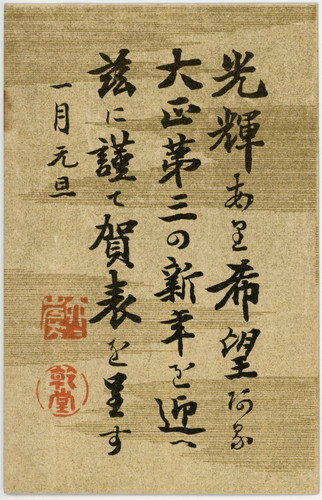 光輝あり希望ある
大正第三の新年を迎へ
茲に謹て賀表を呈す
一月元旦
乾堂